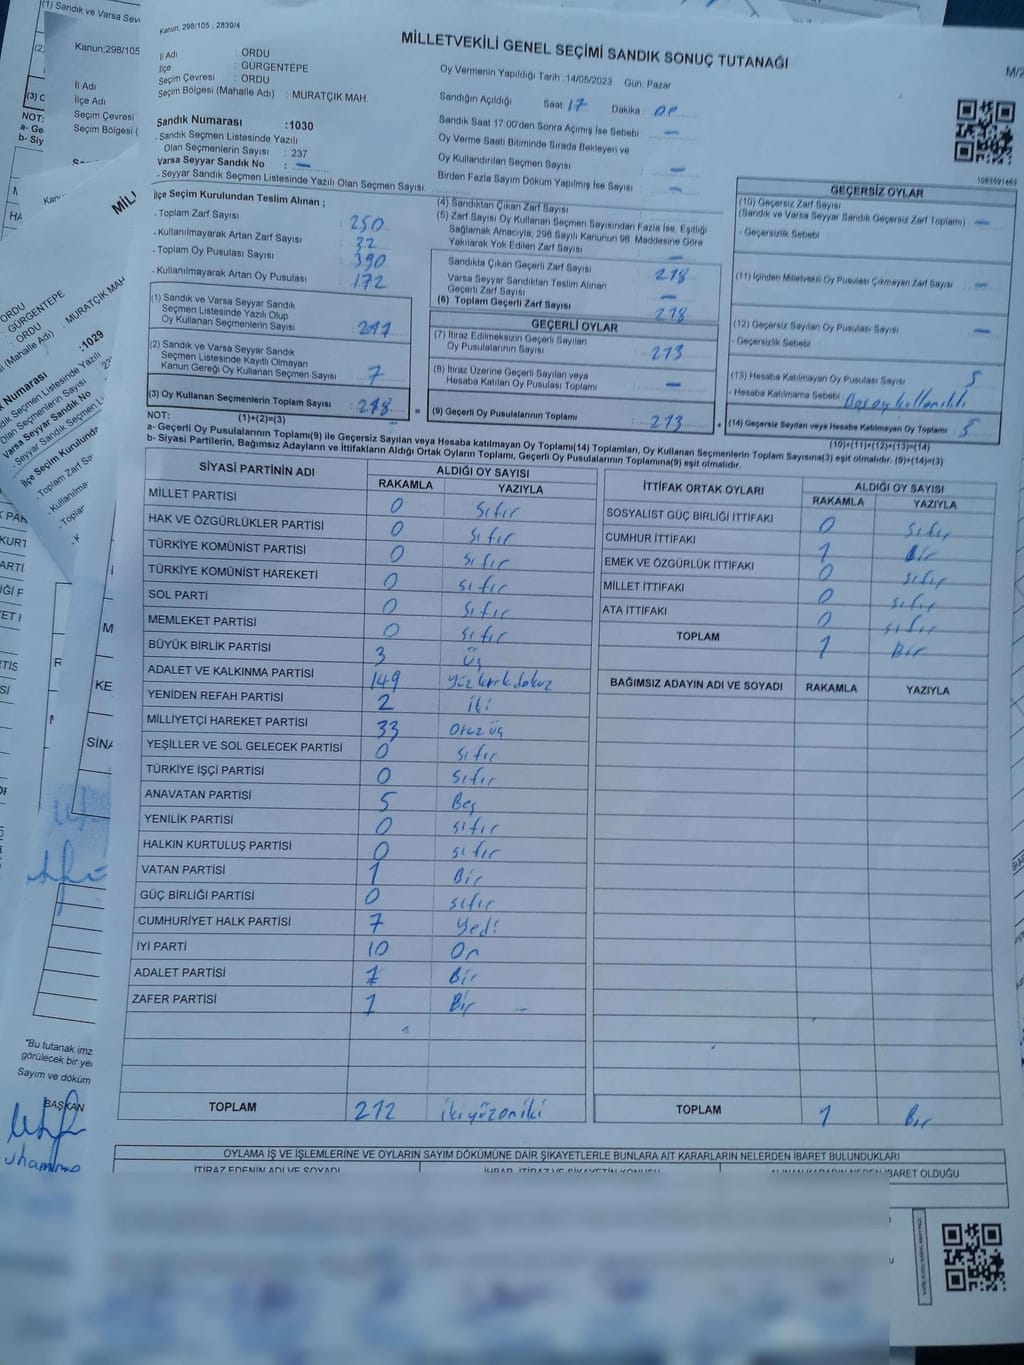 Kanun: 298/105 , 2839/4
MİLLETVEKİLİ GENEL SEÇİMİ SANDIK SONUÇ TUTANAĞI
İl Adı : ORDU
İlçe : GÜRGENTEPE
Seçim Çevresi : ORDU
Seçim Bölgesi (Mahalle Adı) : MURATÇIK MAH.
Oy Vermenin Yapıldığı Tarih :14/05/2023 Gün: Pazar
Sandığın Açıldığı Saat 17 Dakika
Sandık Saat 17:00'den Sonra Açımış İse Sebebi —
Oy Verme Saati Bitiminde Sırada Bekleyen ve
Oy Kullandırılan Seçmen Sayısı —
Birden Fazla Sayım Döküm Yapılmış İse Sayısı —
Sandık Numarası :1030
. Sandık Seçmen Listesinde Yazılı
Olan Seçmenlerin Sayısı : 237
Varsa Seyyar Sandık No : —
- Seyyar Sandık Seçmen Listesinde Yazılı Olan Seçmen Sayısı:
İlçe Seçim Kurulundan Teslim Alınan ;
. Toplam Zarf Sayısı : 250
. Kullanılmayarak Artan Zarf Sayısı : 32
. Toplam Oy Pusulası Sayısı : 390
. Kullanılmayarak Artan Oy Pusulası : 172
(1) Sandık ve Varsa Seyyar Sandık
Seçmen Listesinde Yazılı Olup
Oy Kullanan Seçmenlerin Sayısı :
(2) Sandık ve Varsa Seyyar Sandık
Seçmen Listesinde Kayıtlı Olmayan
Kanun Gereği Oy Kullanan Seçmen Sayısı : 7
(3) Oy Kullanan Seçmenlerin Toplam Sayısı : 218
(1)+(2)=(3)
(4) Sandıktan Çıkan Zarf Sayısı
(5) Zarf Sayısı Oy Kullanan Seçmen Sayısından Fazla İse, Eşitliği
Sağlamak Amacıyla, 298 Sayılı Kanunun 98. Maddesine Göre
Yakılarak Yok Edilen Zarf Sayısı —
Sandıkta Çıkan Geçerli Zarf Sayısı 218
Varsa Seyyar Sandıktan Teslim Alınan
Geçerli Zarf Sayısı —
(6) Toplam Geçerli Zarf Sayısı 218
GEÇERLİ OYLAR
(7) İtiraz Edilmeksizin Geçerli Sayılan
Oy Pusulalarının Sayısı 213
(8) İtiraz Üzerine Geçerli Sayılan veya
Hesaba Katılan Oy Pusulası Toplamı —
= (9) Geçerli Oy Pusulalarının Toplamı 213 +
1089591463
GEÇERSİZ OYLAR
(10) Geçersiz Zarf Sayısı
(Sandık ve Varsa Seyyar Sandık Geçersiz Zarf Toplamı) —
- Geçersizlik Sebebi
(11) İçinden Milletvekili Oy Pusulası Çıkmayan Zarf Sayısı —
(12) Geçersiz Sayılan Oy Pusulası Sayısı —
- Geçersizlik Sebebi
(13) Hesaba Katılmayan Oy Pusulası Sayısı 5
- Hesaba Katılmama Sebebi Boş oy kullanıldı
(14) Geçersiz Sayılan veya Hesaba Katılmayan Oy Toplamı 5
(10)+(11)+(12)+(13)=(14)
NOT:
a- Geçerli Oy Pusulalarının Toplamı(9) ile Geçersiz Sayılan veya Hesaba katılmayan Oy Toplamı(14) Toplamları, Oy Kullanan Seçmenlerin Toplam Sayısına(3) eşit olmalıdır. (9)+(14)=(3)
b- Siyasi Partilerin, Bağımsız Adayların ve İttifakların Aldığı Ortak Oyların Toplamı, Geçerli Oy Pusulalarının Toplamına(9) eşit olmalıdır.
SİYASİ PARTİNİN ADI ALDIĞI OY SAYISI
RAKAMLA YAZIYLA
MİLLET PARTİSİ 0 Sıfır
HAK VE ÖZGÜRLÜKLER PARTİSİ 0 Sıfır
TÜRKİYE KOMÜNİST PARTİSİ 0 Sıfır
TÜRKİYE KOMÜNİST HAREKETİ 0 Sıfır
SOL PARTİ 0 Sıfır
MEMLEKET PARTİSİ 0 Sıfır
BÜYÜK BİRLİK PARTİSİ 3 Üç
ADALET VE KALKINMA PARTİSİ 149 Yüz kırk dokuz
YENİDEN REFAH PARTİSİ 2 İki
MİLLİYETÇİ HAREKET PARTİSİ 33 Otuz üç
YEŞİLLER VE SOL GELECEK PARTİSİ 0 Sıfır
TÜRKİYE İŞÇİ PARTİSİ 0 Sıfır
ANAVATAN PARTİSİ 5 Beş
YENİLİK PARTİSİ 0 Sıfır
HALKIN KURTULUŞ PARTİSİ 0 Sıfır
VATAN PARTİSİ 1 Bir
GÜÇ BİRLİĞİ PARTİSİ 0 Sıfır
CUMHURİYET HALK PARTİSİ 7 Yedi
İYİ PARTİ 10 On
ADALET PARTİSİ 1 Bir
ZAFER PARTİSİ 1 Bir
TOPLAM 212 İkiyüzoniki
İTTİFAK ORTAK OYLARI ALDIĞI OY SAYISI
RAKAMLA YAZIYLA
SOSYALİST GÜÇ BİRLİĞİ İTTİFAKI 0 Sıfır
CUMHUR İTTİFAKI 1 Bir
EMEK VE ÖZGÜRLÜK İTTİFAKI 0 Sıfır
MİLLET İTTİFAKI 0 Sıfır
ATA İTTİFAKI 0 Sıfır
TOPLAM 1 Bir
BAĞIMSIZ ADAYIN ADI VE SOYADI RAKAMLA YAZIYLA
TOPLAM 1 Bir
OYLAMA İŞ VE İŞLEMLERİNE VE OYLARIN SAYIM DÖKÜMÜNE DAİR ŞİKAYETLERLE BUNLARA AİT KARARLARIN NELERDEN İBARET BULUNDUKLARI
İTİRAZ EDENİN ADI VE SOYADI
İBARET OLDUĞU
Kanun;298/105
İl Adı
İlçe Adı
Seçim Çevresi
Seçim Bölgesi (
NOT:
ORDU
GÜRGENTEPE
: ORDU
: MURATÇIK MAH
:1029
"Bu tutanak imz
görülecek bir ye
Sayım ve döküm
BAŞKAN